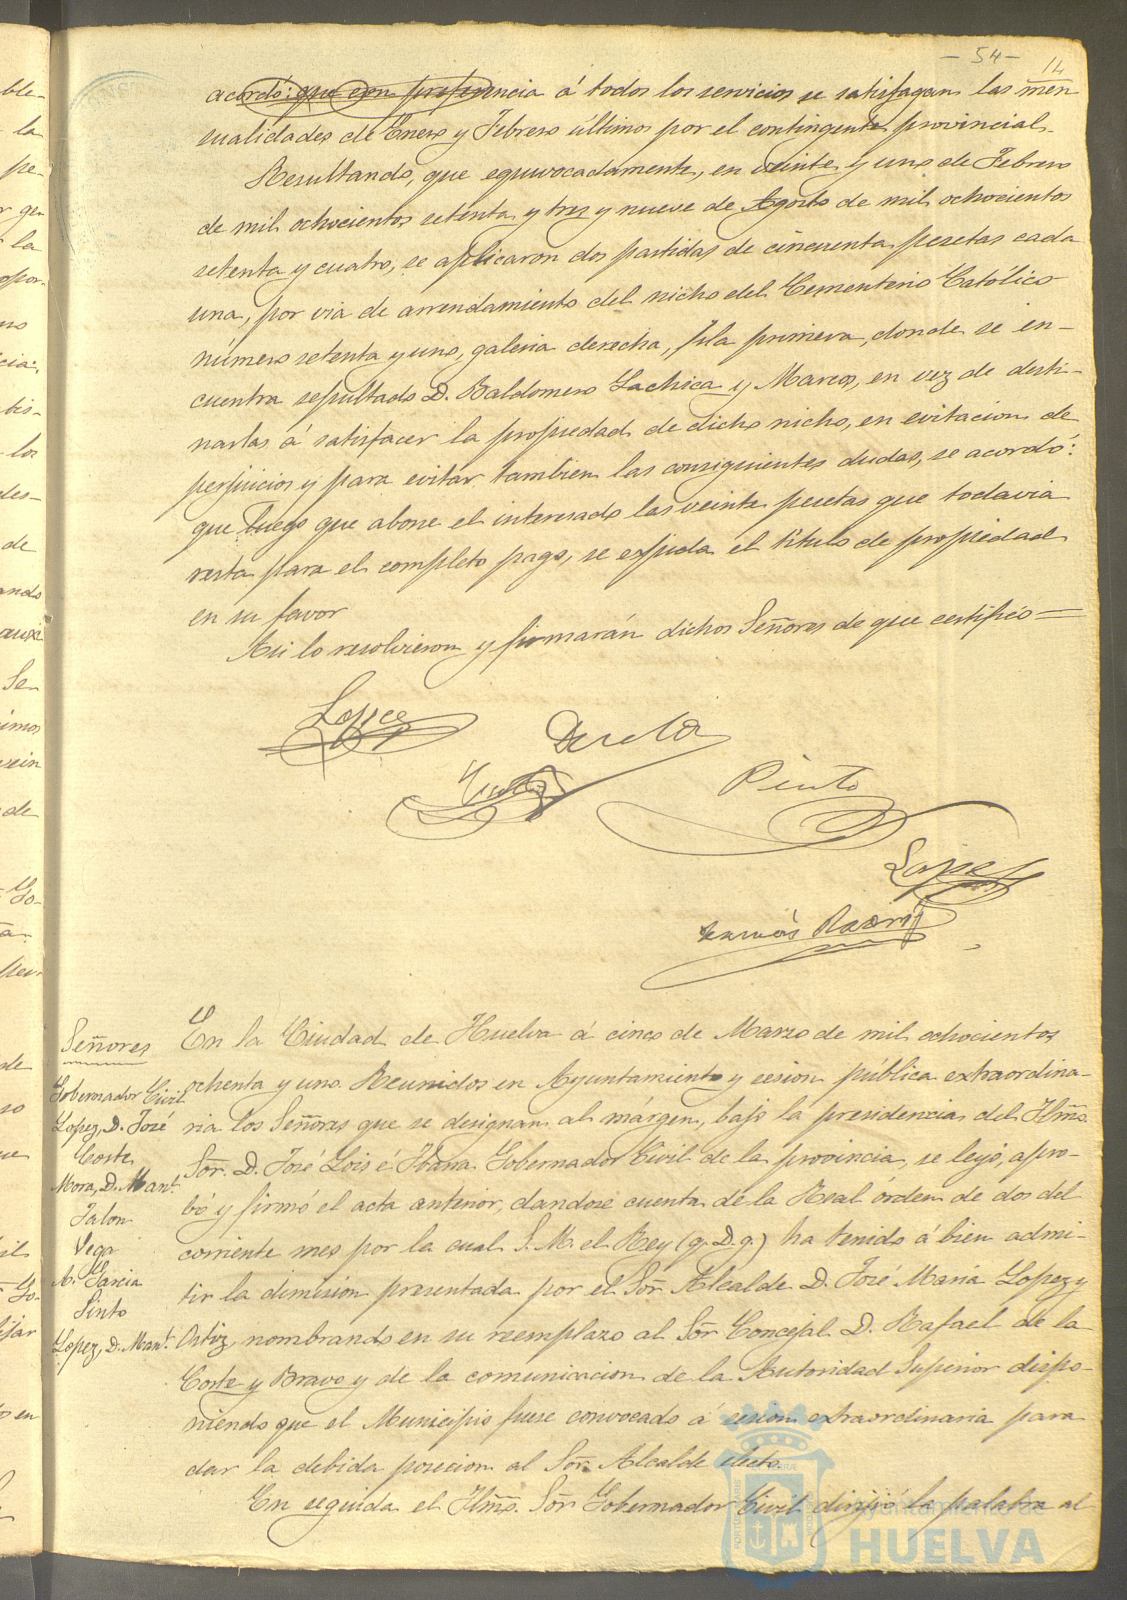 - 54 -
14
acordó: que con preferencia á todos los servicios se satisfagan las men
sualidades de Enero y Febrero últimos por el contingente provincial.
Resultando, que equivocadamente, en veinte y uno de Febrero
de mil ochocientos setenta y tres y nueve de Agosto de mil ochocientos
setenta y cuatro, se aplicaron dos partidas de cincuenta pesetas cada
una, por via de arrendamiento del nicho del Cementerio Católico
número setenta y uno, galeria derecha, fila primera, donde se en-
cuentra sepultado D. Baldomero Lachica y Marcos, en vez de desti-
narlas á satisfacer la propiedad de dicho nicho, en evitacion de
perjuicios y para evitar tambien las consiguientes dudas, se acordó:
que luego que abone el interesado las veinte pesetas que todavia
resta para el completo pago, se expida el titulo de propiedad
en su favor
Asi lo resolvieron y firmarán dichos Señores de que certifico=
Lopez
Pinto
Lopez
Señores
Gobernador Civil
Lopez, D. José
Corte
Mora, D. Man.l
Jalon
Vega
A. Garcia
Pinto
Lopez, D. Man.l
En la Ciudad de Huelva á cinco de Marzo de mil ochocientos
ochenta y uno. Reunidos en Ayuntamiento y sesion pública extraordina-
ria los Señores que se designan al márgen, bajo la presidencia del Ilmo.
Sor. D. José Lois é Ibarra Gobernador Civil de la provincia, se leyó, apro-
bó y firmó el acta anterior, dandose cuenta de la Real órden de dos del
corriente mes por la cual S. M. el Rey (q. D. g.) ha tenido á bien admi-
tir la dimision presentada por el Sor. Alcalde D. José Maria Lopez y
Ortiz, nombrando en su reemplazo al Sor. Concejal D. Rafael de la
Corte y Bravo y de la comunicacion de la Autoridad Superior dispo-
niendo que el Municipio fuese convocado á sesion extraordinaria para
dar la debida posecion al Sor. Alcalde electo.
En seguida el Ilmo. Sor. Gobernador Civil dirijió la palabra al
Ayuntamiento de
HUELVA